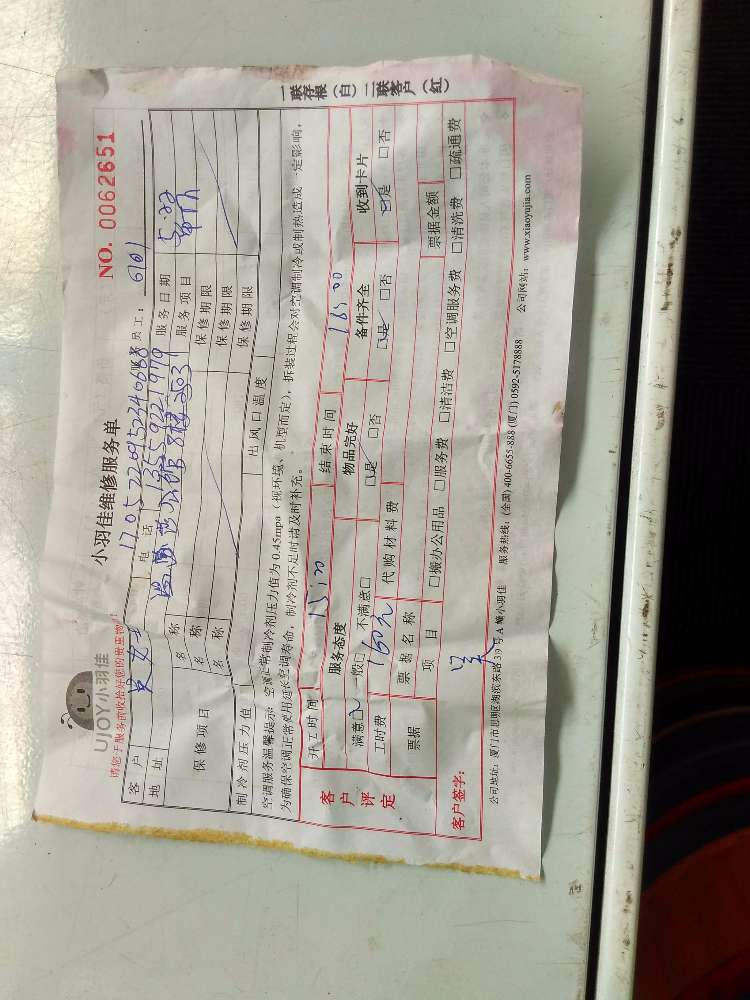 一联存根（白）二联客户（红）
小羽佳维修服务单
NO. 0062651
UJOY小羽佳
请您于服务前收拾好您的贵重物
1705220952340688 员工： 6101
客户 女士 电话 13559221979 服务日期 5.22
地址 8楼203 服务项目
保修项目 名称 保修期限
名称 保修期限
名称 保修期限
制冷剂压力值 出风口温度
空调服务温馨提示：空调正常制冷剂压力值为0.45mpa（视环境、机型而定），拆装过程会对空调制冷或制热造成一定影响，
为确保空调正常使用延长空调寿命，制冷剂不足时请及时补充。
客户评定
开工时间 15:00 结束时间 16:00
服务态度 物品完好 备件齐全 收到卡片
满意□ 一般□ 不满意□ □是 □否 □是 □否 □是 □否
工时费 160元 代购材料费
票据 票据名称 票据金额
项目 □搬办公用品 □服务费 □清洁费 □空调服务费 □清洗费 □疏通费
客户签字： 吴
公司地址：厦门市思明区湖滨东路39号A幢小羽佳 服务热线：(全国) 400-6655-888 (厦门) 0592-5178888 公司网站：www.xiaoyujia.com